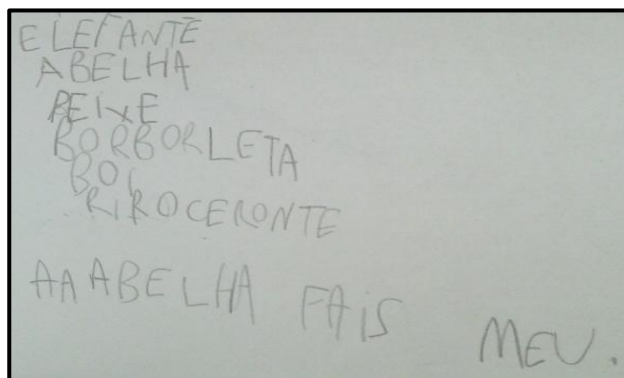 ELEFANTE
ABELHA
PEIXE
BORBORLETA
BOI
RIROCERONTE
AA ABELHA FAIS MEU.